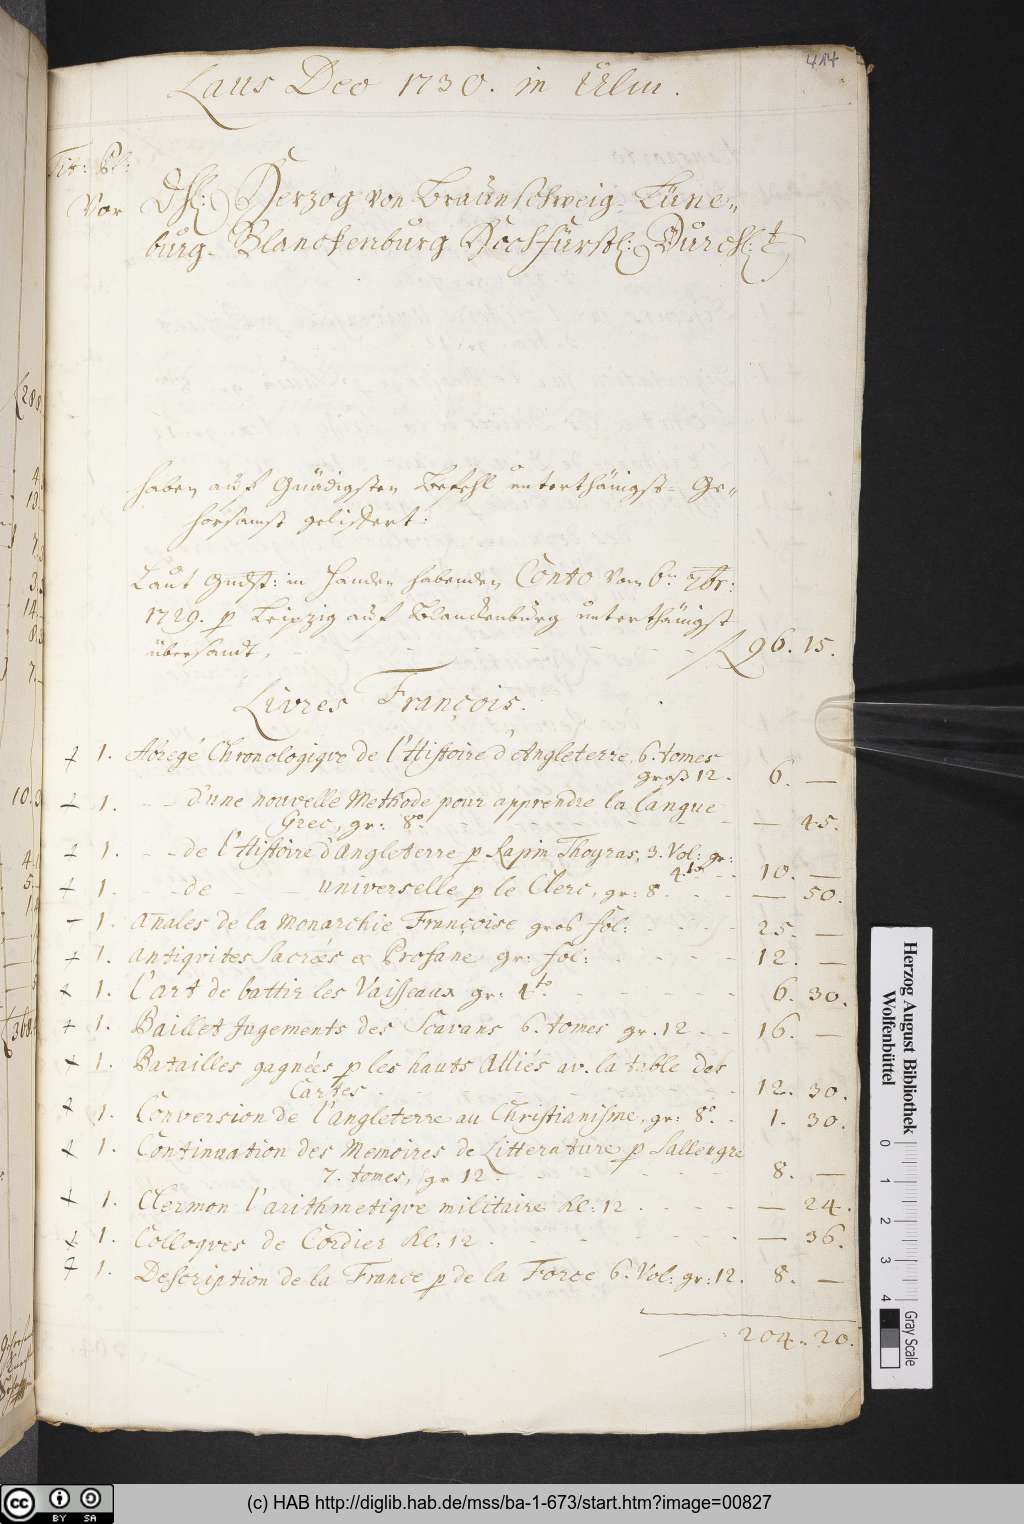 414
Laus Deo 1730. in Ulm.
Tit: Pl:
Vor Ihl: Herzog von Braunschweig-Lüne-
burg-Blanckenburg Hochfürstl: Durchl:t
haben auf Gnädigsten Befehl unterthänigst- Ge-
horsamst geliffert:
Laut Gndst: in Handen habenden Conto vom 6.n 7br:
1729. p Leipzig auf Blanckenburg unterthänigst
übersandt, - - - - f 96. 15.
Livres François.
+ 1. Abregé Chronologique de l'Histoire d'Angleterre, 6. tomes
groß 12. 6. —
+ 1. - - d'une nouvelle Methode pour apprendre la langue
Grec, gr: 8o. — 45.
+ 1. - - de l'Histoire d'Angleterre p Rapin Thoyras, 3. Vol: gr:
4to - - 10. —
+ 1. - - de - - universelle p le Clerc, gr: 8. - - — 50.
— 1. Anales de la Monarchie Françoise gros fol: - - - 25. —
+ 1. Antiquites Sacrées & Profane gr: fol: - - - 12. —
+ 1. L'art de battir les Vaisseaux gr: 4to. - - - 6. 30.
+ 1. Baillet Jugements des Scavans 6. tomes gr. 12 - - 16. —
+ 1. Batailles gagnées p les hauts Alliés av. la table des
Cartes - - - 12. 30.
+ 1. Conversion de l'angleterre au Christianisme, gr: 8o. - 1. 30.
+ 1. Continuation des Memoires de Litterature p Sallengre
7. tomes, gr 12 - - - 8. —
+ 1. Clermon l'arithmetique militaire kl: 12 - - - — 24.
+ 1. Colloques de Cordier kl: 12 - - - — 36.
+ 1. Description de la France p de la Force 6. Vol: gr: 12. 8. —
204. 20.
Herzog August Bibliothek
Wolfenbüttel
0 1 2 3 4
Gray Scale
cc BY SA
(c) HAB http://diglib.hab.de/mss/ba-1-673/start.htm?image=00827